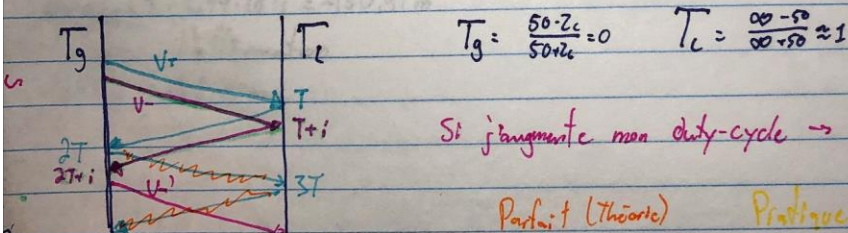 Tg
TL
V+
V-
T
T+i
2T
2T+i
V-'
3T
Tg = 50-Zc / 50+Zc = 0
TL = ∞-50 / ∞+50 ≈ 1
Si j'augmente mon duty-cycle →
Parfait (Théorie)
Pratique